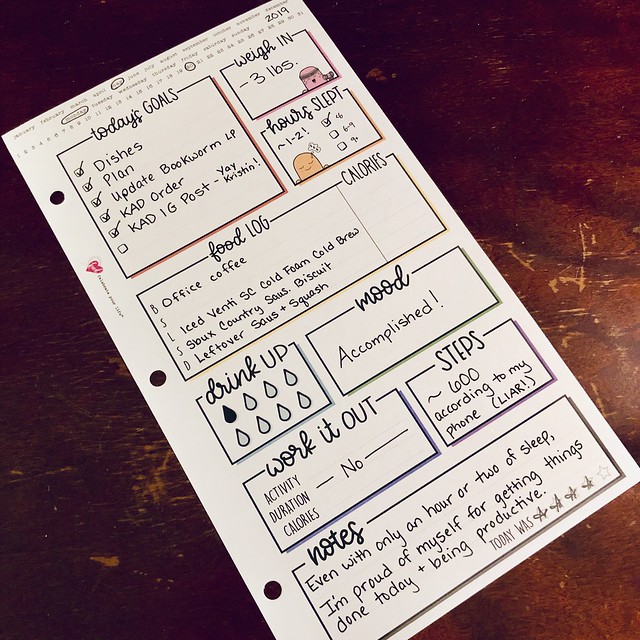 january february march april may june july august september october november december
monday tuesday wednesday thursday friday saturday sunday
2019
1 2 3 4 5 6 7 8 9 10 11 12 13 14 15 16 17 18 19 20 21 22 23 24 25 26 27 28 29 30 31
todays GOALS
Dishes
Plan
Update Bookworm LP
KAD Order
KAD IG Post - Yay
Kristin!
weigh IN
-3 lbs.
hours SLEPT
~1-2!
6-9
food LOG
CALORIES
B Office coffee
S
L Iced Venti SC Cold Foam Cold Brew
S Sbux Country Saus. Biscuit
D Leftover Saus + Squash
mood
Accomplished!
drink UP
STEPS
~ 600
according to my
phone (LIAR!)
work it OUT
ACTIVITY
DURATION
CALORIES
— No —
notes
Even with only an hour or two of sleep,
I'm proud of myself for getting things
done today + being productive.
TODAY WAS